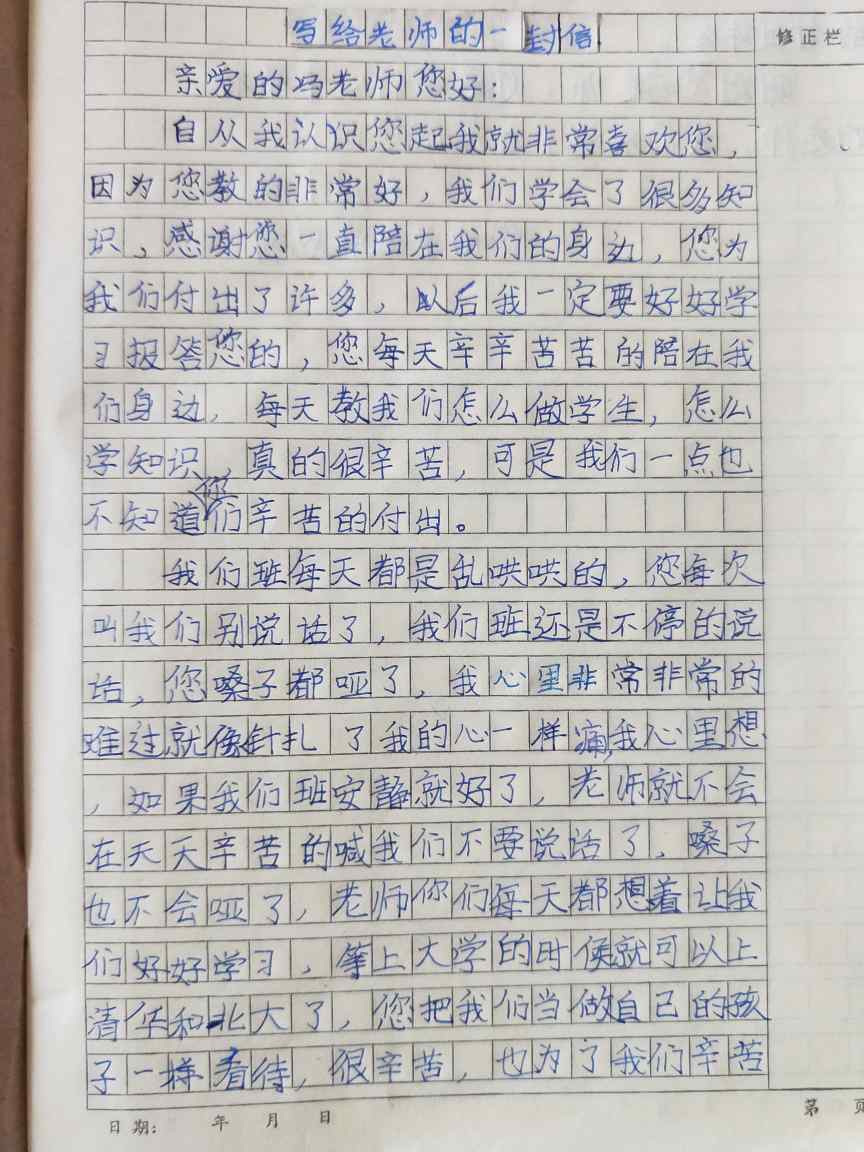 写给老师的一封信
修正栏
亲爱的冯老师您好：
自从我认识您起我就非常喜欢您，
因为您教的非常好，我们学会了很多知
识，感谢您一直陪在我们的身边，您为
我们付出了许多，以后我一定要好好学
习报答您的，您每天辛辛苦苦的陪在我
们身边，每天教我们怎么做学生，怎么
学知识，真的很辛苦，可是我们一点也
不知道您们辛苦的付出。
我们班每天都是乱哄哄的，您每次
叫我们别说话了，我们班还是不停的说
话，您嗓子都哑了，我心里非常非常的
难过就像针扎了我的心一样痛，我心里想
，如果我们班安静就好了，老师就不会
在天天辛苦的喊我们不要说话了，嗓子
也不会哑了，老师你们每天都想着让我
们好好学习，等上大学的时候就可以上
清华和北大了，您把我们当做自己的孩
子一样看待，很辛苦，也为了我们辛苦
日期： 年 月 日
第 页